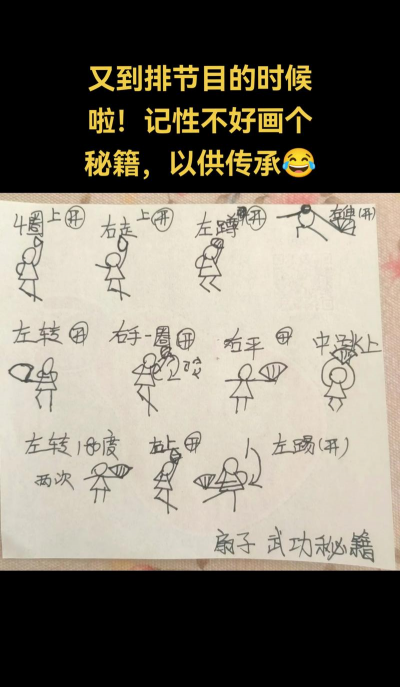 又到排节目的时候
啦！记性不好画个
秘籍，以供传承😂
4圈上开
右走上开
左蹲开
右伸(开)
左转开
右手一圈开
右平开
中跳上
左转180度
两次
右上开
左踢(开)
扇子 武功秘籍